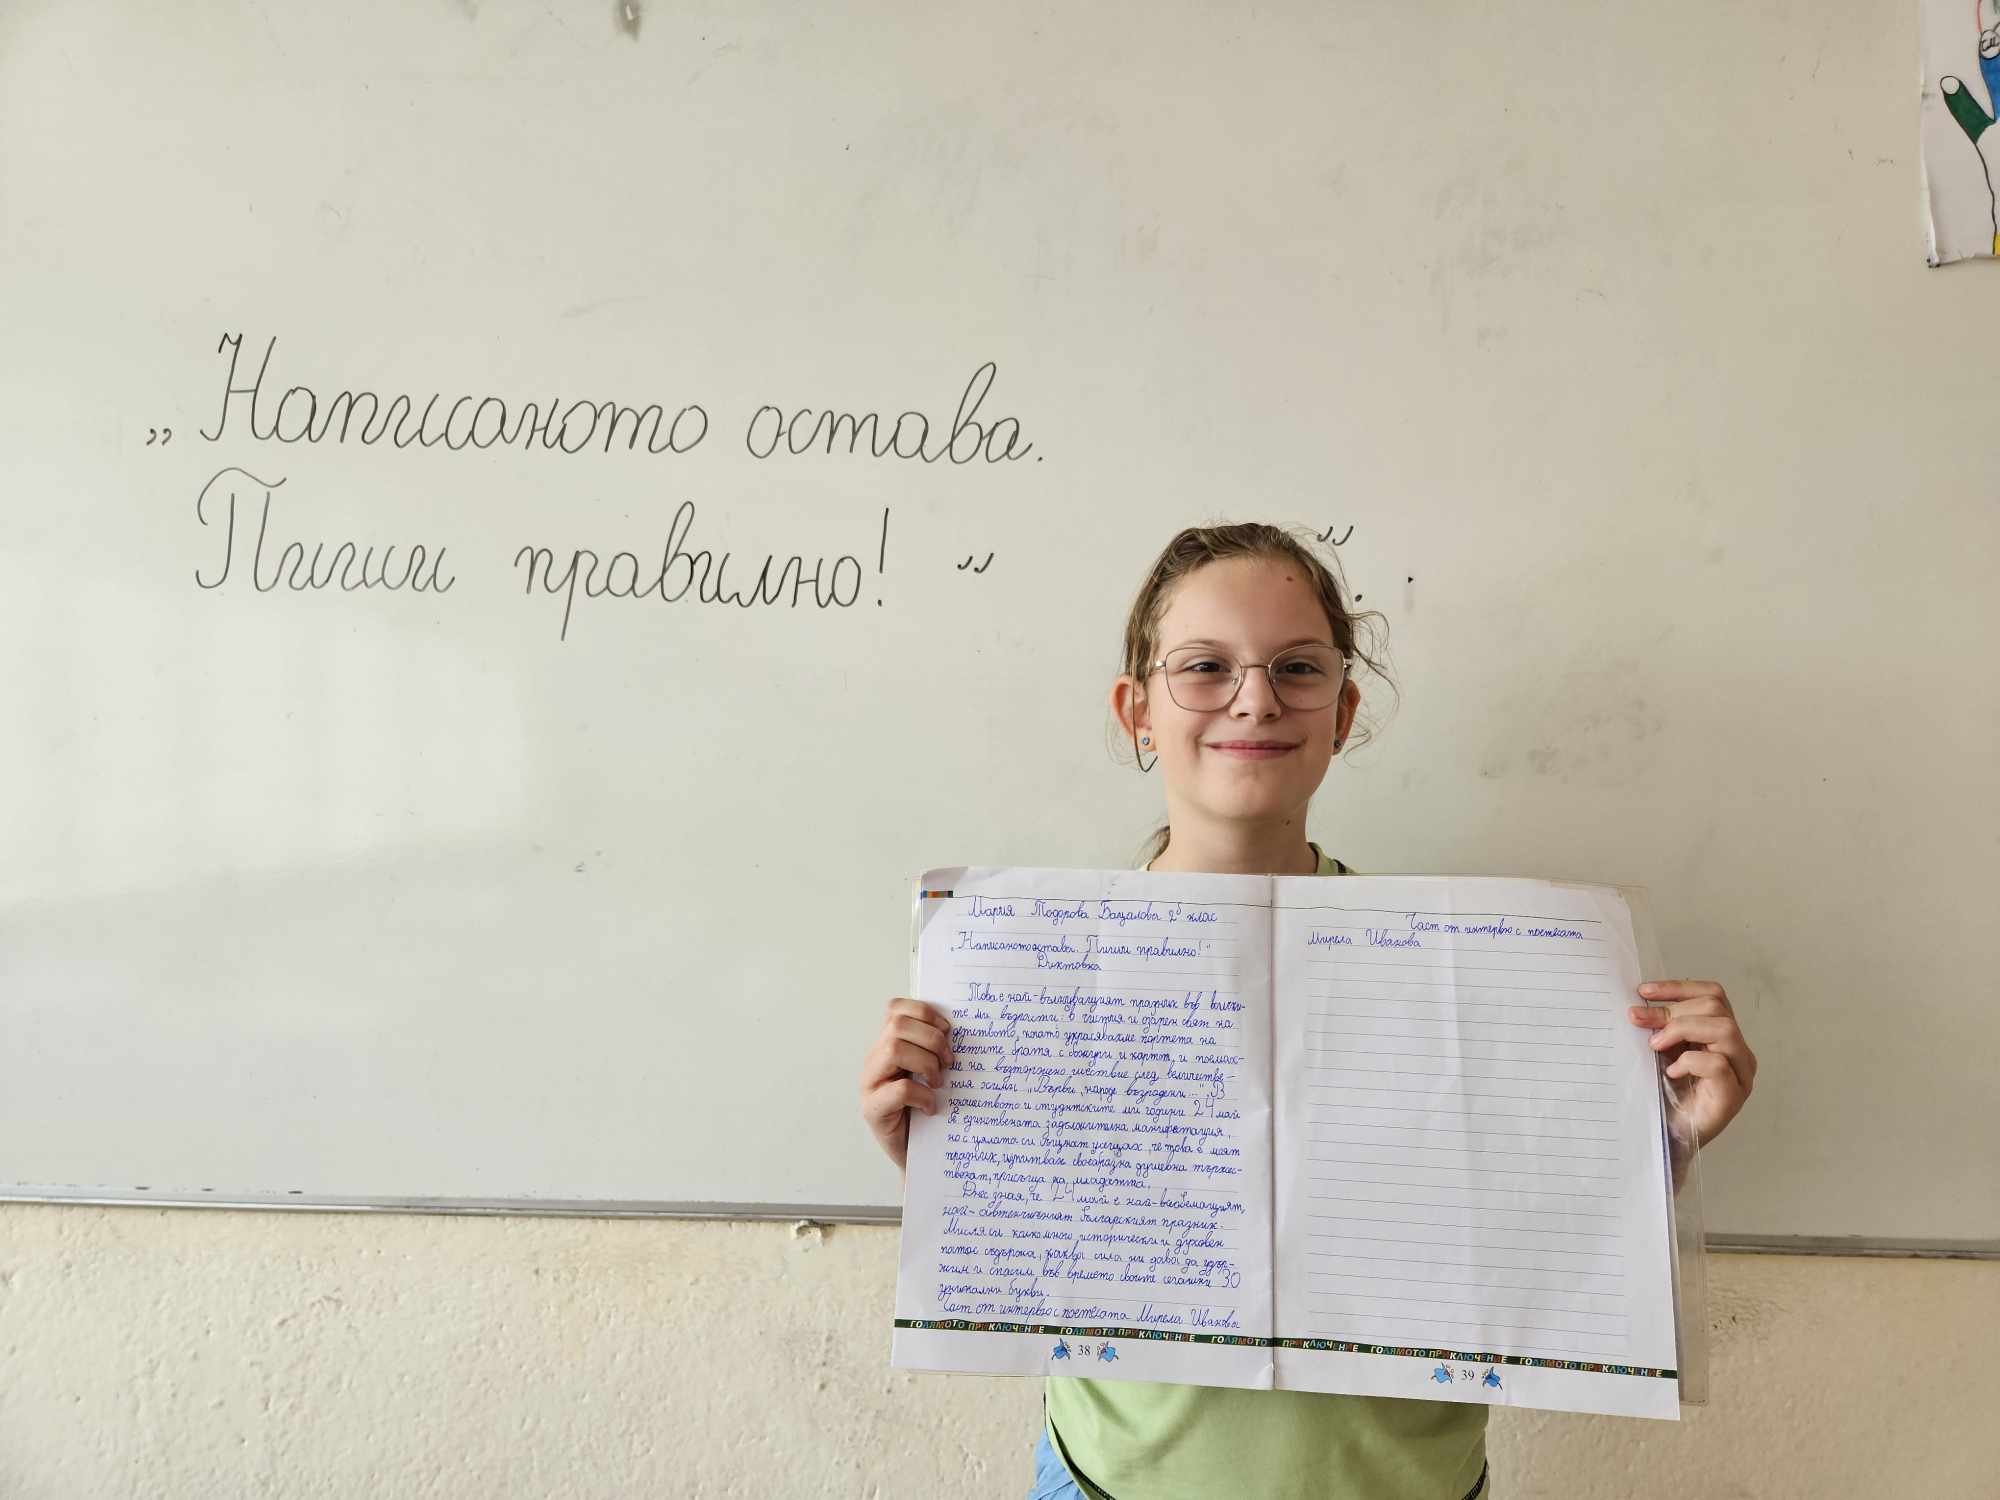 „Написаното остава.
Пиши правилно!”
”.
Мария Тодорова Бацалова 2б клас
„Написаното остава. Пиши правилно!"
Диктовка
Това е най-вълнуващият празник във всички-
те ми възрасти: в чистия и озарен свят на
детството, когато украсявахме портрета на
светите братя с божури и картон, и поемах-
ме на възторжено шествие след величестве-
ния химн „Върви, народе възродени...". В
юношеството и студентските ми години 24 май
бе единствената задължителна манифестация,
но с цялата си същност усещах, че това е моят
празник, изпитвах своеобразна душевна тържес-
твенат, присъща на младостта.
Днес зная, че 24 май е най-всеобемащият,
най-автентичният българският празник.
Мисля си колкомного исторически и духовен
патос съдържа, каква сила ни дава да удър-
жим и спасим във времето своите сегашни 30
уникални букви.
Част от интервю с поетесата Мирела Иванова
ГОЛЯМОТО ПРИКЛЮЧЕНИЕ ГОЛЯМОТО ПРИКЛЮЧЕНИЕ ГОЛЯМОТО
38
Част от интервю с поетесата
Мирела Иванова
ПРИКЛЮЧЕНИЕ ГОЛЯМОТО ПРИКЛЮЧЕНИЕ ГОЛЯМОТО ПРИКЛЮЧЕНИЕ
39